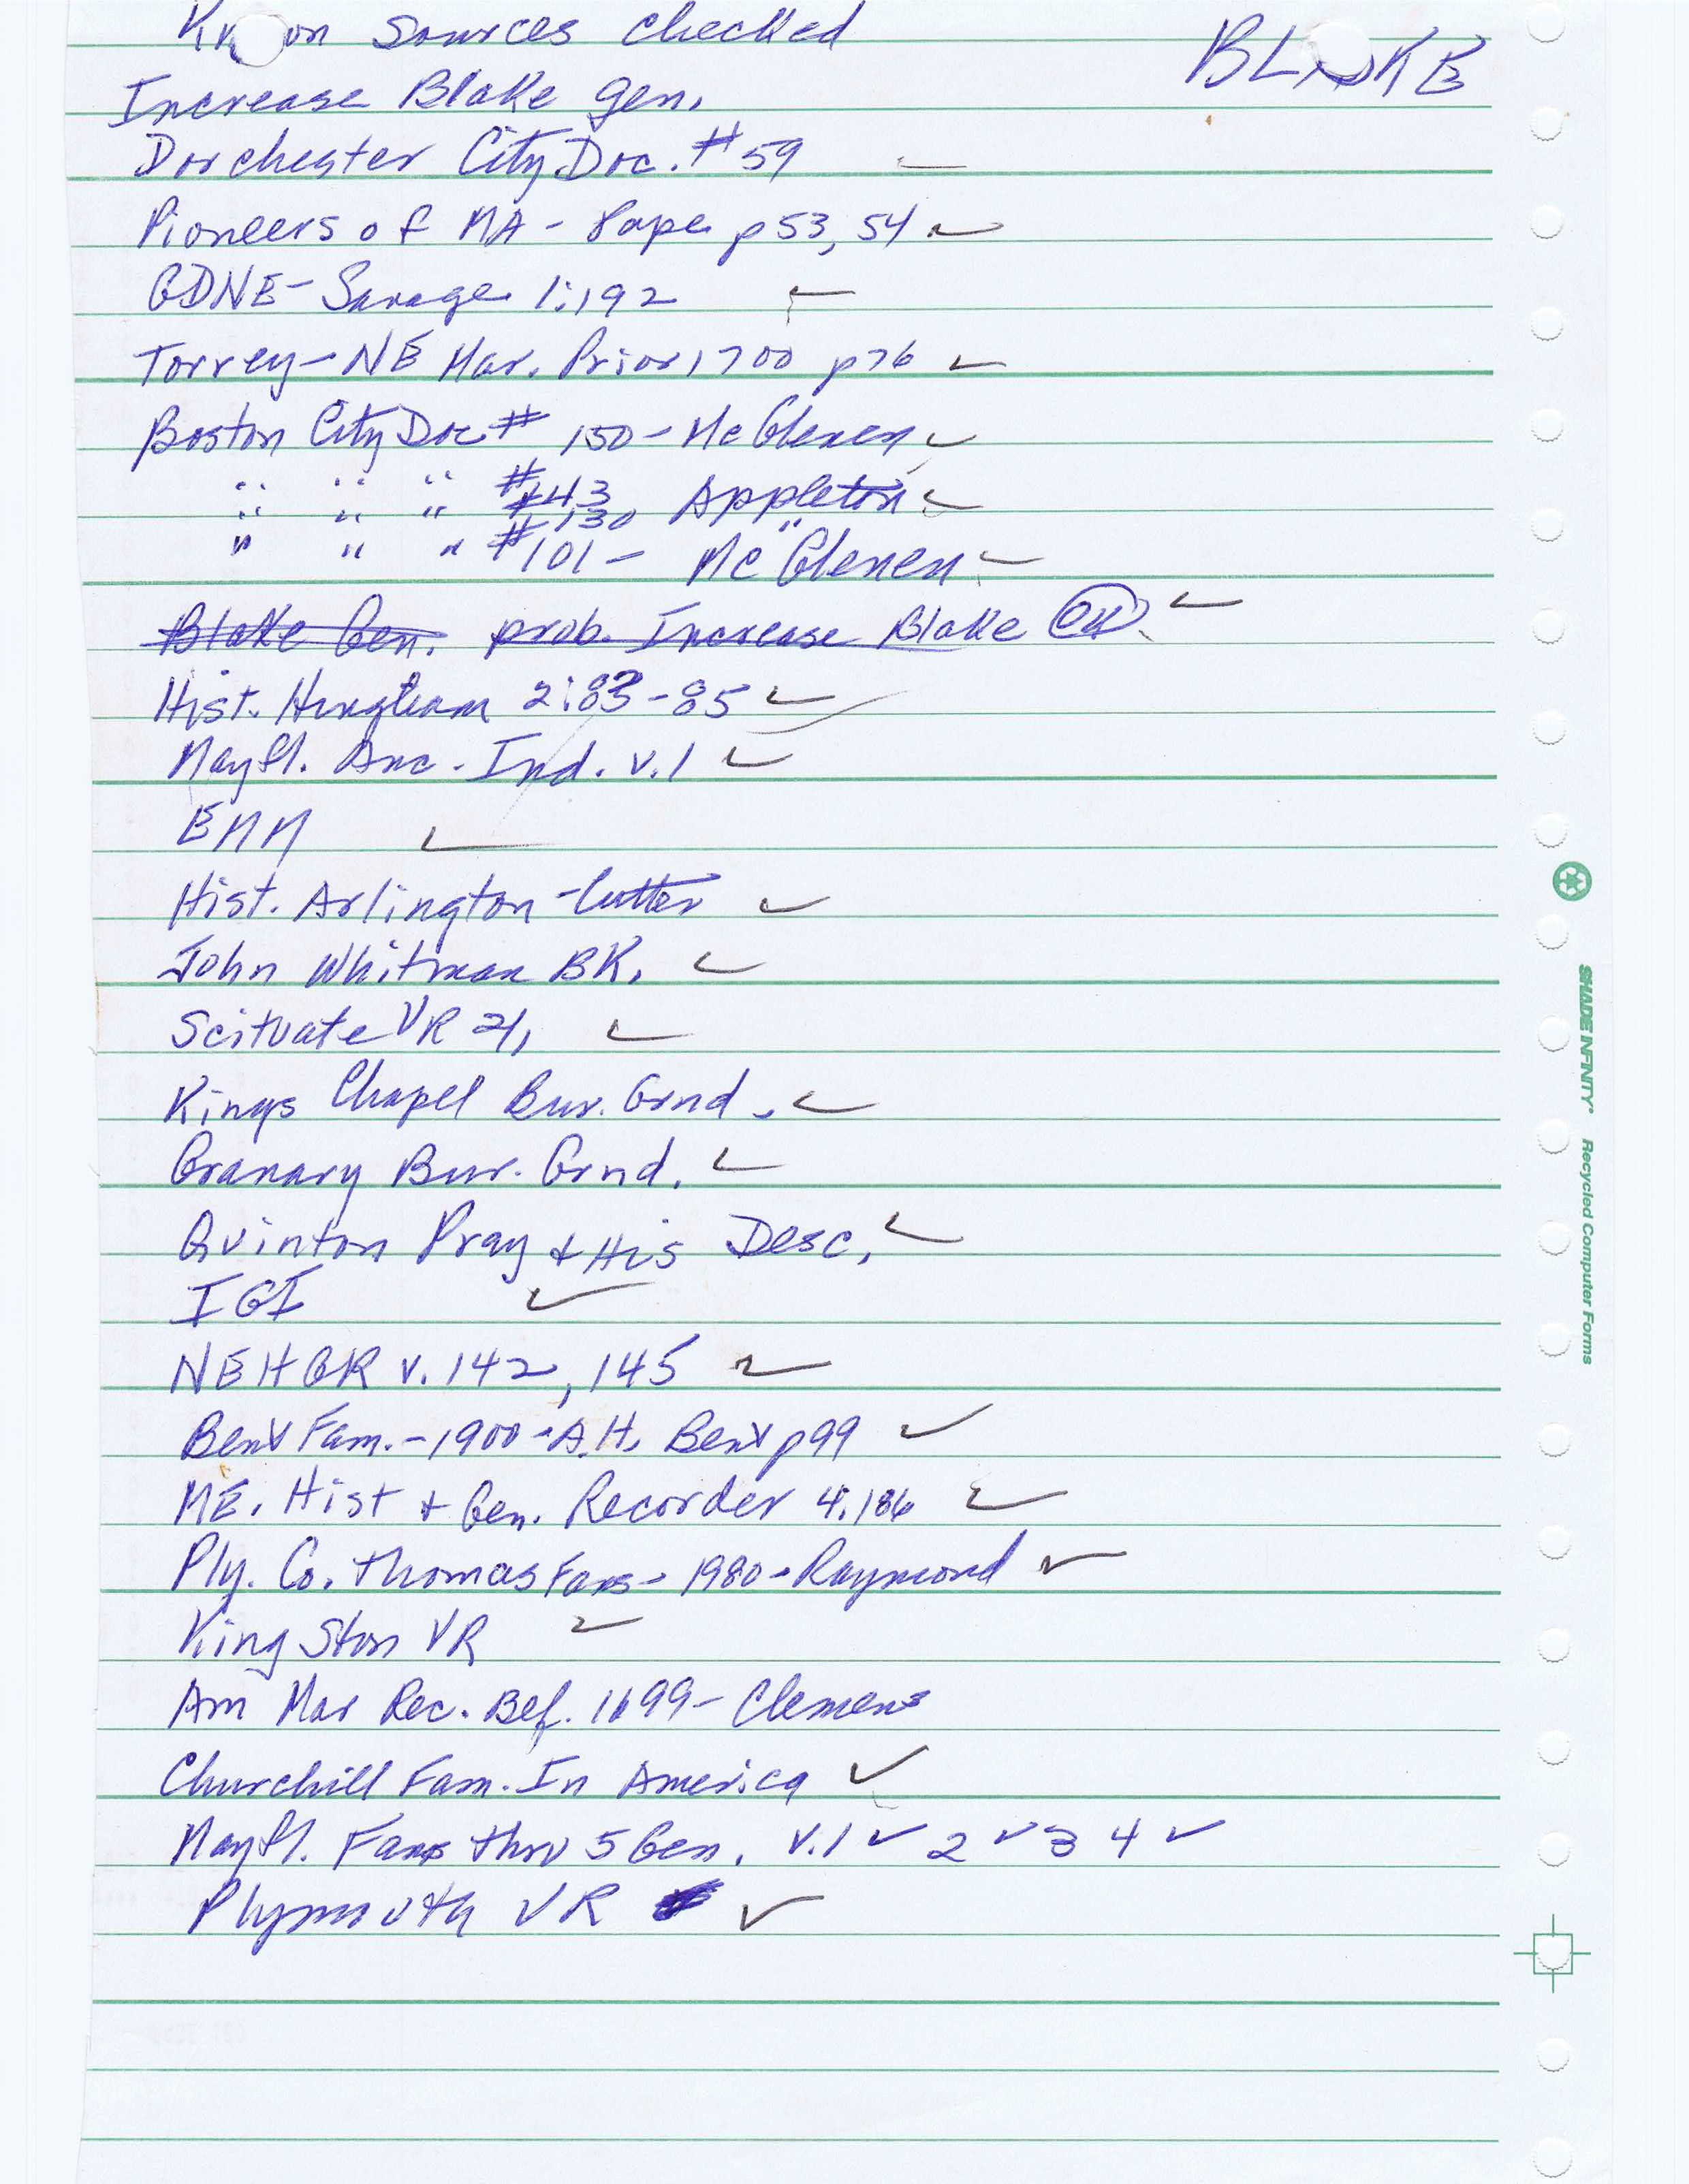 Kn on Sources Checked
BLAKE
Increase Blake gen.
Dorchester City Doc. #59
Pioneers of MA - Pope p 53, 54 ✓
GDNE - Savage 1:192 ✓
Torrey - NE Mar. Prior 1700 p 76 ✓
Boston City Doc # 150 - McGlenen ✓
" " " #43 Appleton ✓
" " " #130 "
" " " #101 - McGlenen ✓
Blake Gen. prob. Increase Blake OK ✓
Hist. Hingham 2:83-85 ✓
Mayfl. Anc. Ind. v. 1 ✓
EMM ✓
Hist. Arlington - Cutter ✓
John Whitman BK. ✓
Scituate VR ✓
Kings Chapel Bur. Grnd. ✓
Granary Bur. Grnd. ✓
Quinton Pray + His Desc. ✓
IGI ✓
NEHGR v. 142, 145 ✓
Bent Fam. - 1900 - A.H. Bent p 99 ✓
ME. Hist + Gen. Recorder 4:186 ✓
Ply. Co. Thomas Fams - 1980 - Raymond ✓
Kingston VR ✓
Am Mar Rec. Bef. 1699 - Clemens
Churchill Fam. In America ✓
Mayfl. Fams thru 5 Gen. v. 1 ✓ 2 ✓ 3 4 ✓
Plymouth VR ✓
SHADE INFINITY® Recycled Computer Forms